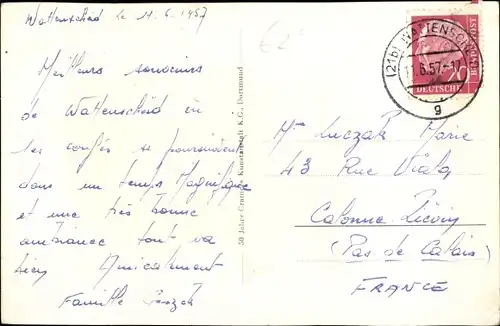 Wattenscheid le 11.6.1957
Meilleurs souvenirs
de Wattenscheid ou
les congés se poursuivent
dans un temps Magnifique
et une très bonne
ambiance tout va
bien Amicalement
Famille
50 Jahre Cramers Kunstanstalt K.G., Dortmund
(21b) WATTENSCHEID
11.6.57.-17
g
20
DEUTSCHE
BUNDESPOST
Me Luczak Marie
43 Rue Viala
Calonne Ricouart
(Pas de Calais)
FRANCE